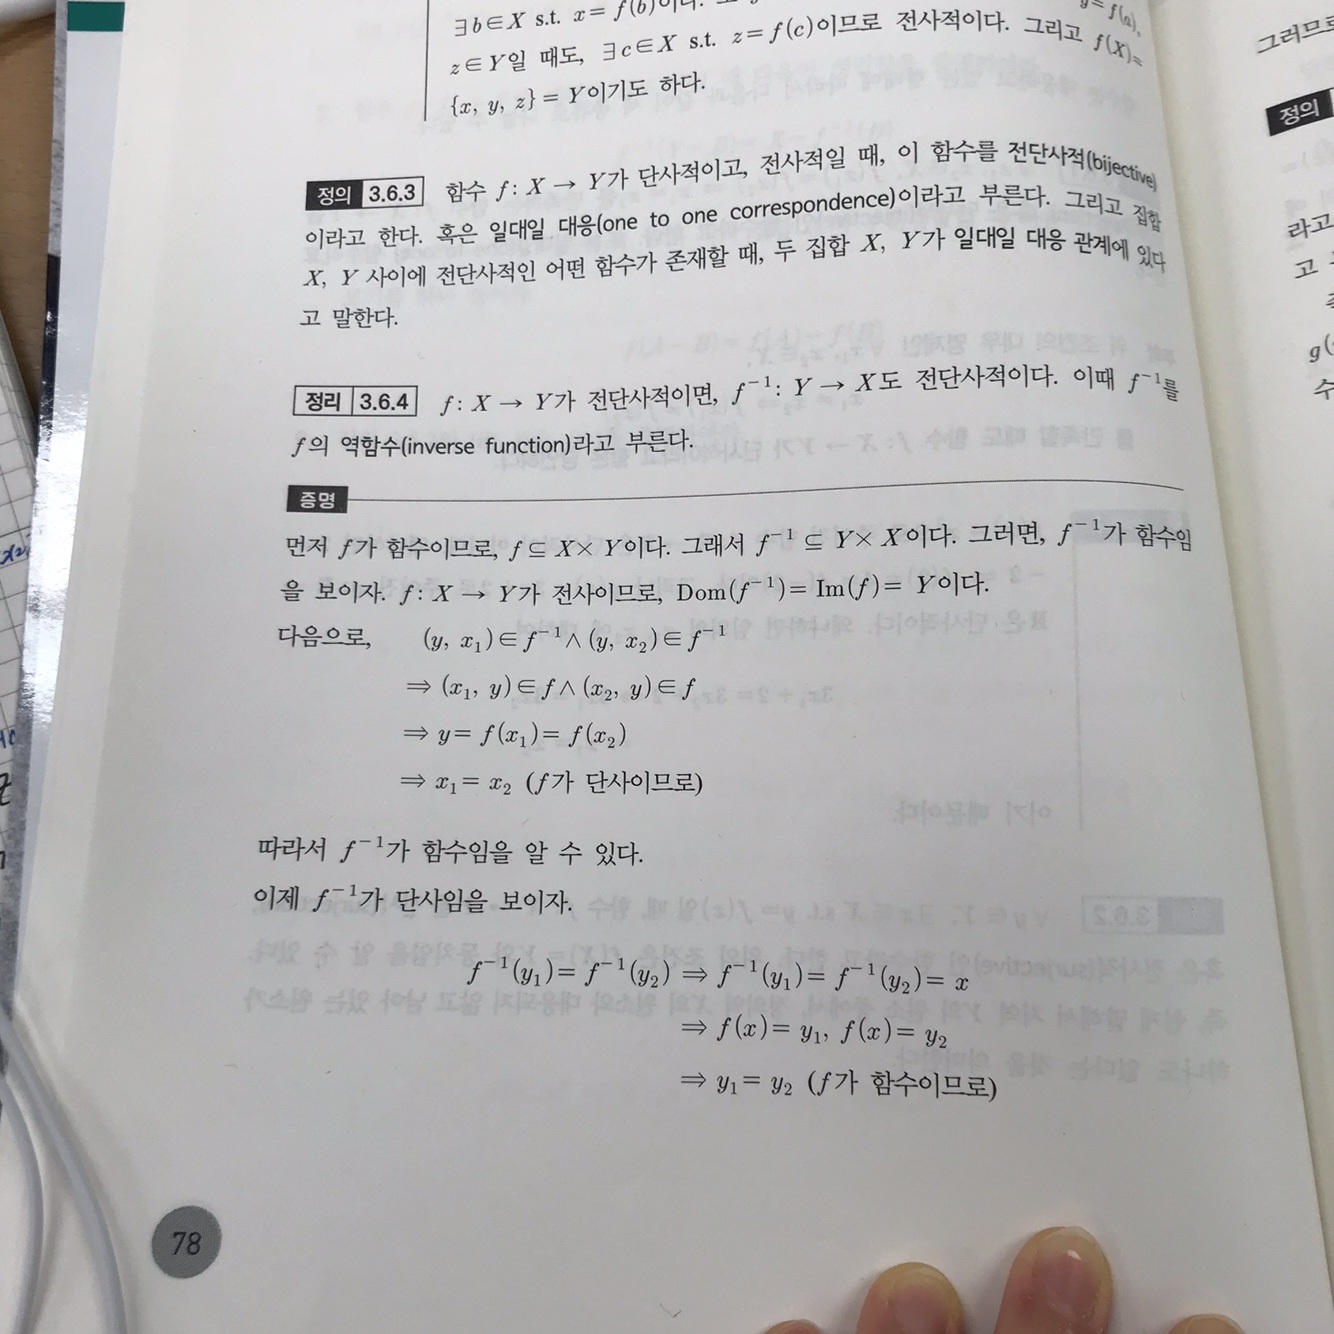 ∃b∈X s.t. x= f(b)이다.
y= f(a),
z∈Y일 때도, ∃c∈X s.t. z=f(c)이므로 전사적이다. 그리고 f(X)=
{x, y, z}= Y이기도 하다.
정의 3.6.3 함수 f: X → Y가 단사적이고, 전사적일 때, 이 함수를 전단사적(bijective)
이라고 한다. 혹은 일대일 대응(one to one correspondence)이라고 부른다. 그리고 집합
X, Y 사이에 전단사적인 어떤 함수가 존재할 때, 두 집합 X, Y가 일대일 대응 관계에 있다
고 말한다.
정리 3.6.4 f: X → Y가 전단사적이면, f⁻¹: Y → X도 전단사적이다. 이때 f⁻¹를
f의 역함수(inverse function)라고 부른다.
증명
먼저 f가 함수이므로, f⊆X×Y이다. 그래서 f⁻¹⊆Y×X이다. 그러면, f⁻¹가 함수임
을 보이자. f: X → Y가 전사이므로, Dom(f⁻¹)= Im(f)= Y이다.
다음으로, (y, x₁)∈f⁻¹∧(y, x₂)∈f⁻¹
⇒ (x₁, y)∈f∧(x₂, y)∈f
⇒ y= f(x₁)= f(x₂)
⇒ x₁= x₂ (f가 단사이므로)
따라서 f⁻¹가 함수임을 알 수 있다.
이제 f⁻¹가 단사임을 보이자.
f⁻¹(y₁)= f⁻¹(y₂) ⇒ f⁻¹(y₁)= f⁻¹(y₂)= x
⇒ f(x)= y₁, f(x)= y₂
⇒ y₁= y₂ (f가 함수이므로)
78
그러므로
정의
라고
고
g(
수